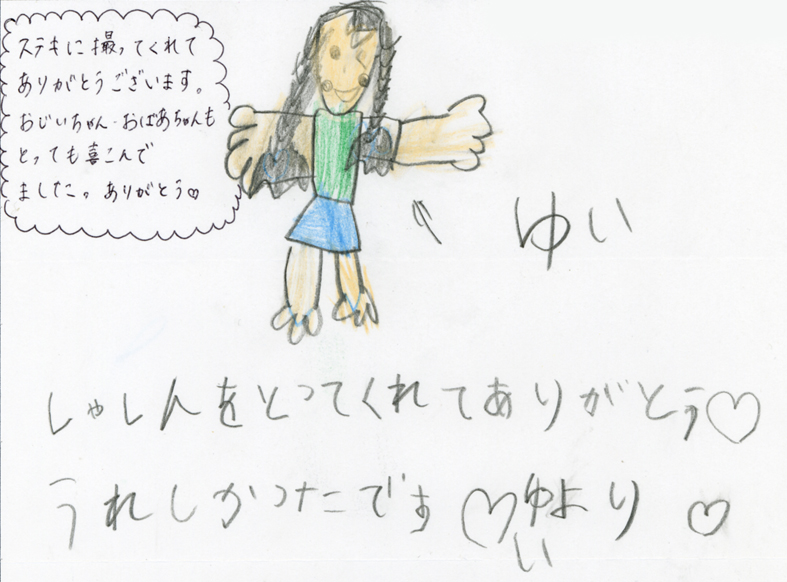 ステキに撮ってくれて
ありがとうございます。
おじいちゃん・おばあちゃんも
とっても喜こんで
ました。ありがとう♡
ゆい
しゃしんをとってくれてありがとう♡
うれしかったです♡ゆいより♡